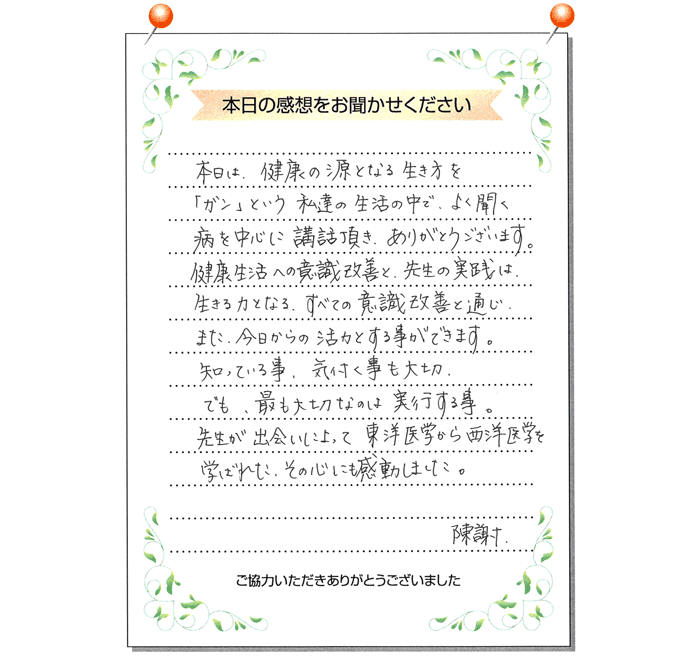 本日の感想をお聞かせください
本日は、健康の源となる生き方を
「ガン」という私達の生活の中で、よく聞く
病を中心に講話頂き、ありがとうございます。
健康生活への意識改善と、先生の実践は、
生きる力となる、すべての意識改善と通じ、
また、今日からの活力とする事ができます。
知っている事、気付く事も大切、
でも、最も大切なのは実行する事。
先生が出会いによって東洋医学から西洋医学を
学ばれた、その心にも感動しました。
陳謝、
ご協力いただきありがとうございました